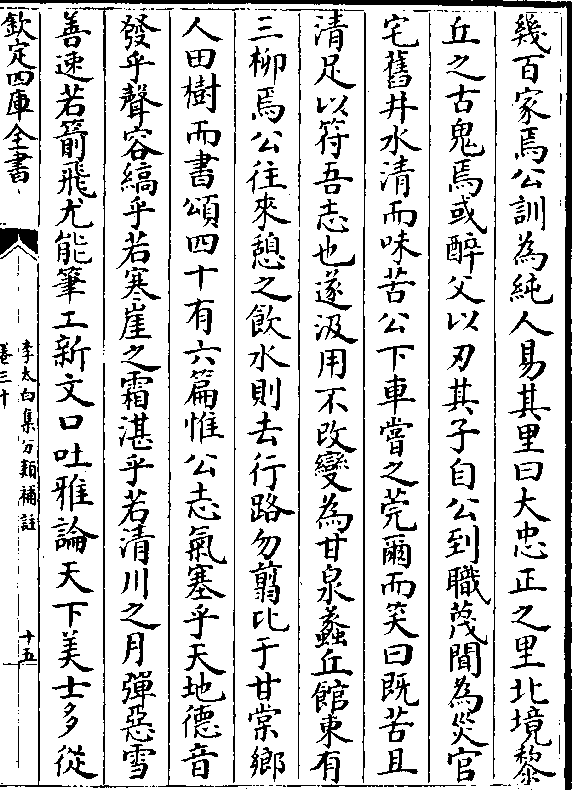 幾百家焉公訓為純人易其里曰大忠正之里北境黎
丘之古鬼焉或醉父以刃其子自公到職蔑聞為災官
宅舊井水清而味苦公下車嘗之莞爾而笑曰既苦且
清足以符吾志也遂汲用不改變為甘泉蠡丘館東有
三柳焉公往來憩之飲水則去行路勿翦比于甘棠鄉
人田樹而書頌四十有六篇惟公志氣塞乎天地德音
發乎聲容縞乎若寒崖之霜湛乎若清川之月彈惡雪
善速若箭飛尤能筆工新文口吐雅論天下美士多從
欽定四庫全書
李太白集分類補註
卷三十
十五